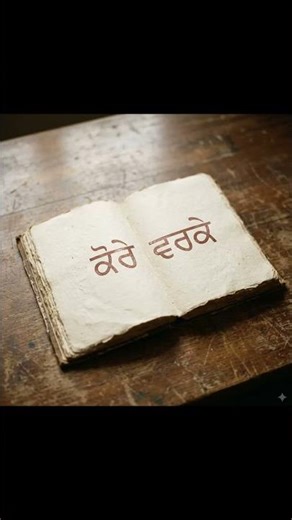 ਕੋਰੇ ਵਰਕੇ